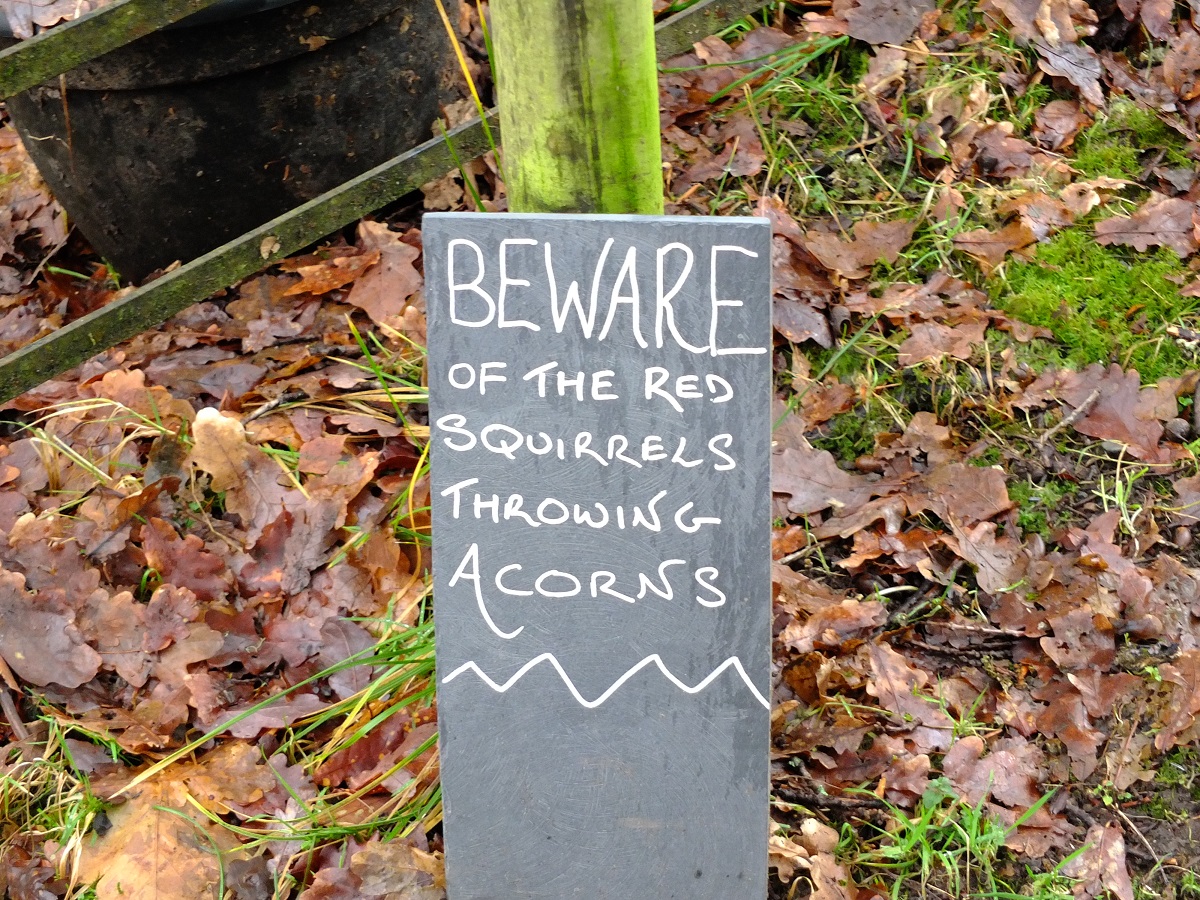 BEWARE
OF THE RED
SQUIRRELS
THROWING
ACORNS